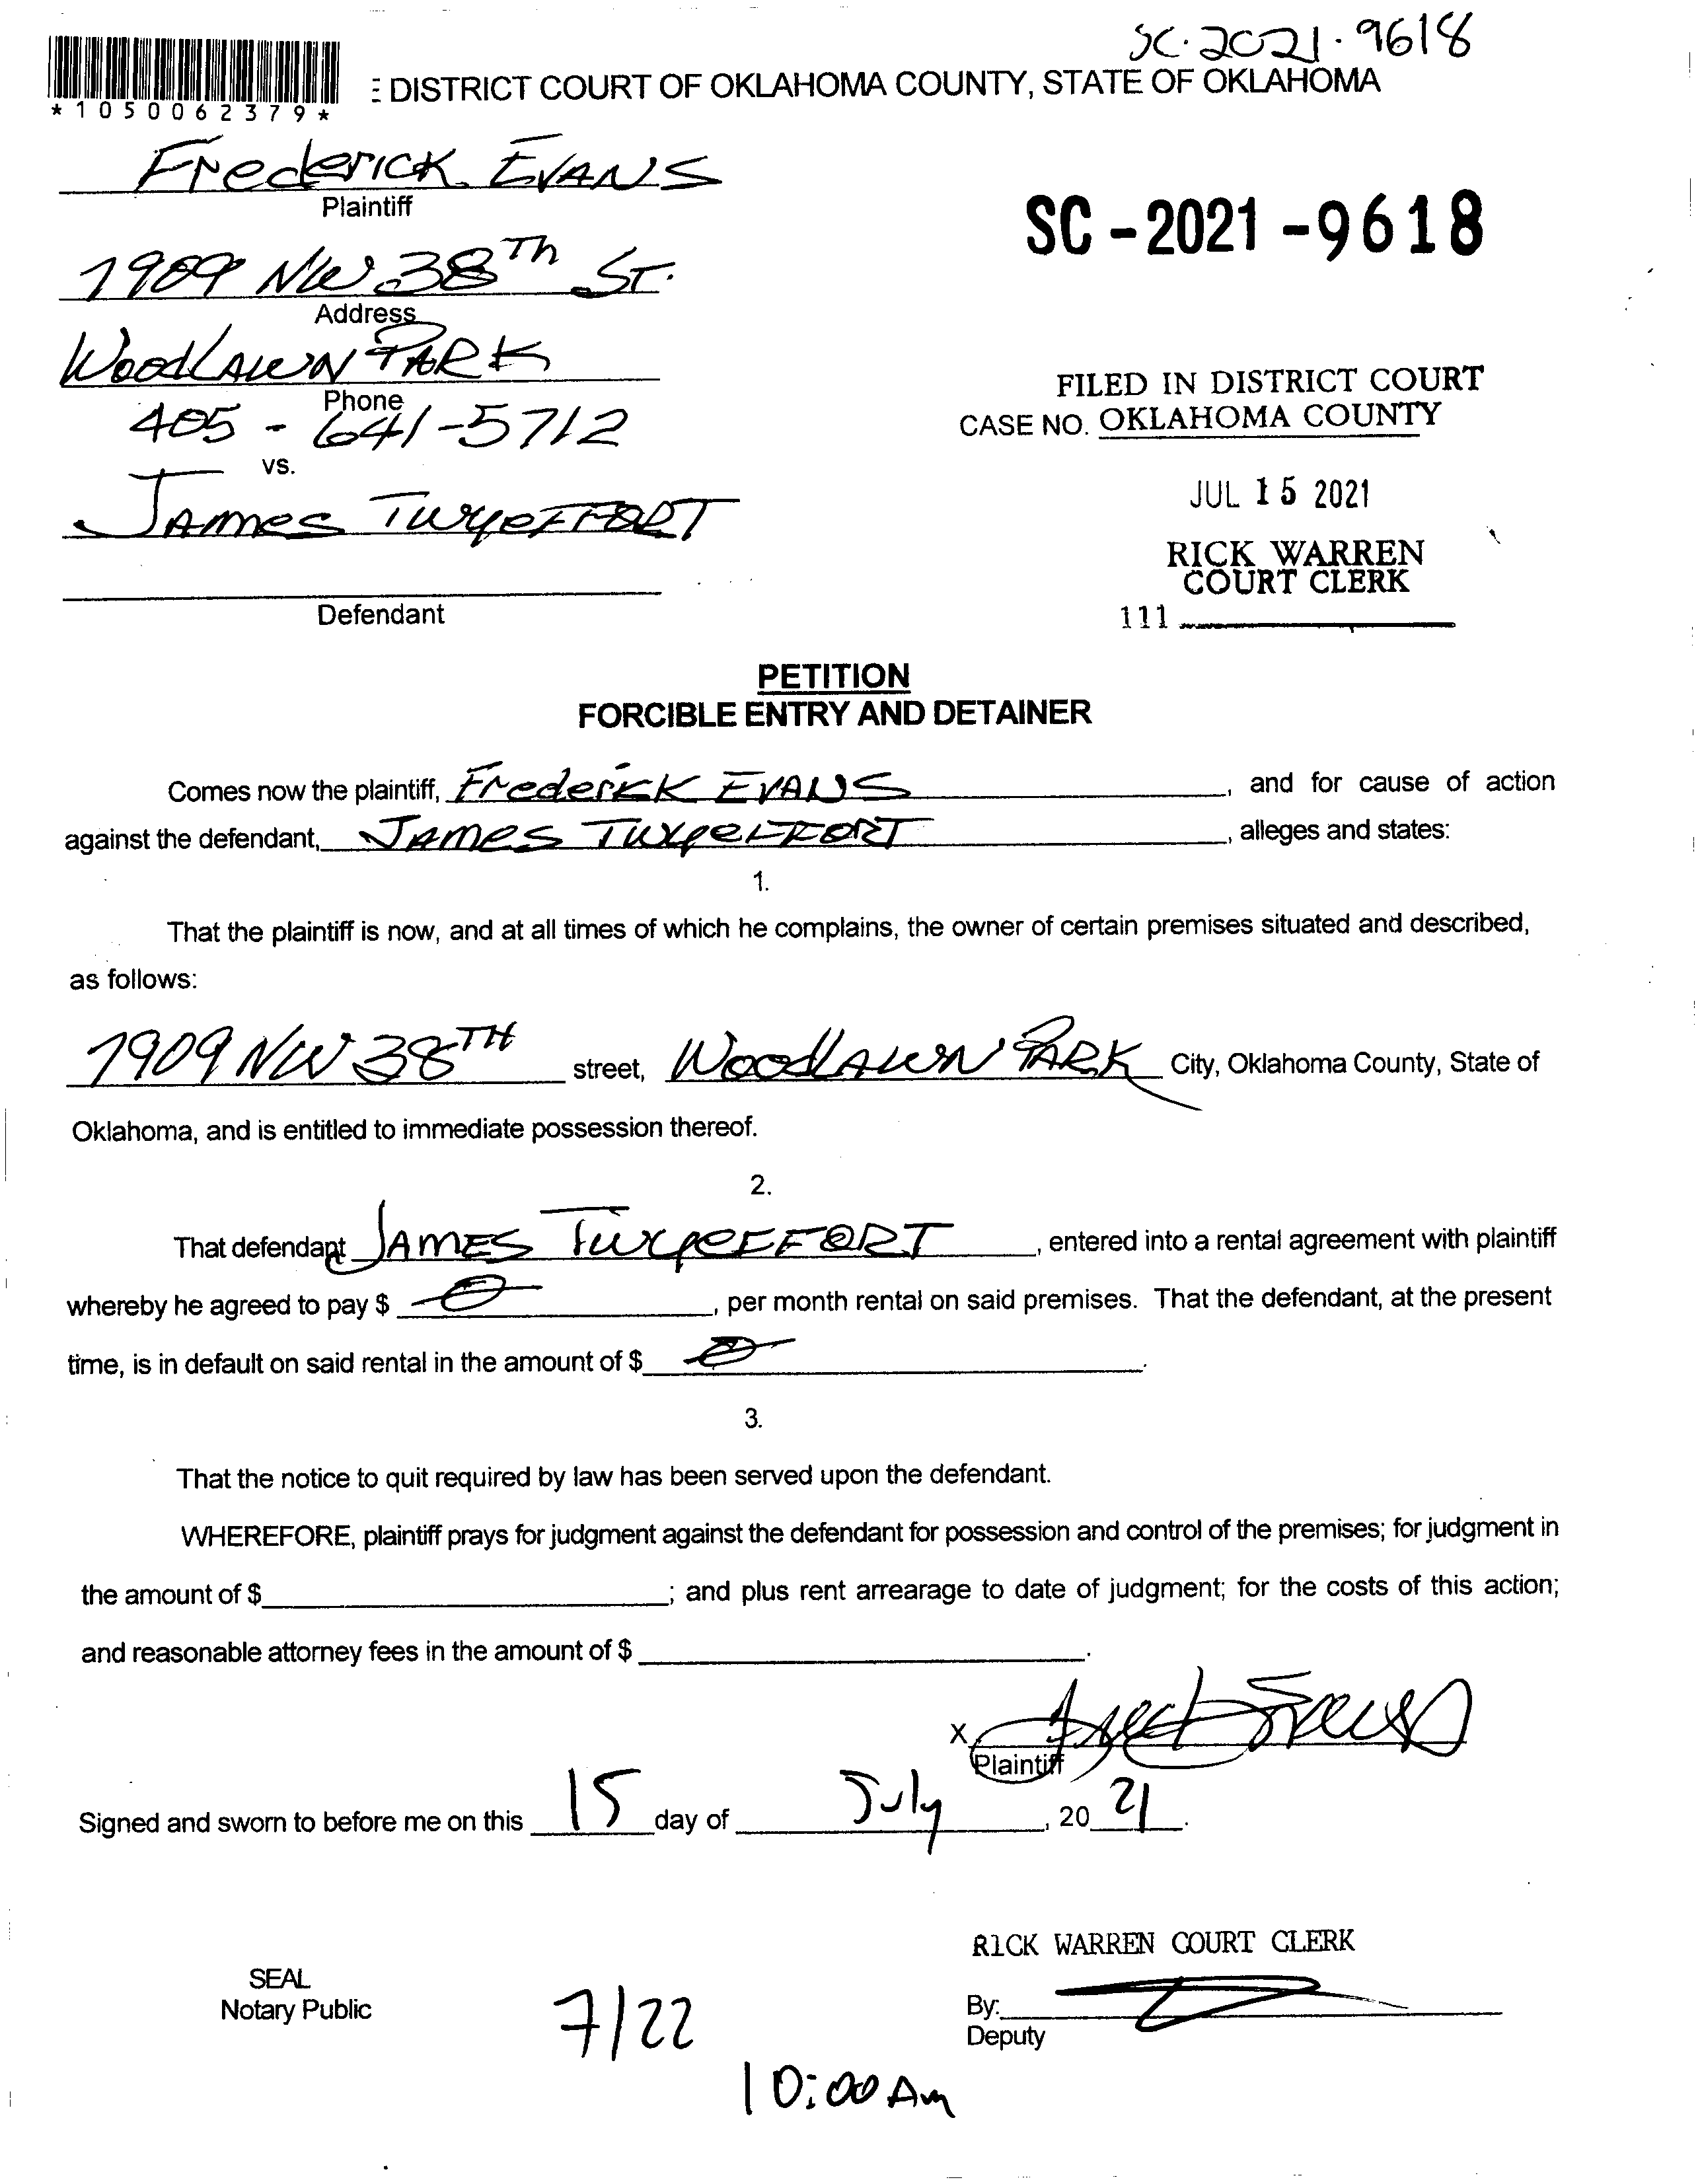 SC-2021-9618
DISTRICT COURT OF OKLAHOMA COUNTY, STATE OF OKLAHOMA
*1050062379*
Frederick EVANS
Plaintiff
SC-2021-9618
1909 NW 38Th ST.
Address
WoodLAWN PARK
FILED IN DISTRICT COURT
Phone
CASE NO. OKLAHOMA COUNTY
405-641-5712
vs.
JUL 15 2021
JAmes TwyeFFORT
RICK WARREN
COURT CLERK
Defendant
111
PETITION
FORCIBLE ENTRY AND DETAINER
Comes now the plaintiff, Frederick EVANS, and for cause of action
against the defendant, JAmes TwyeFFORT, alleges and states:
1.
That the plaintiff is now, and at all times of which he complains, the owner of certain premises situated and described,
as follows:
1909 NW 38TH street, WoodLAWN PARK City, Oklahoma County, State of
Oklahoma, and is entitled to immediate possession thereof.
2.
That defendant JAMES TwyeFFORT, entered into a rental agreement with plaintiff
whereby he agreed to pay $ 0, per month rental on said premises. That the defendant, at the present
time, is in default on said rental in the amount of $ 0.
3.
That the notice to quit required by law has been served upon the defendant.
WHEREFORE, plaintiff prays for judgment against the defendant for possession and control of the premises; for judgment in
the amount of $; and plus rent arrearage to date of judgment; for the costs of this action;
and reasonable attorney fees in the amount of $.
X Fred Evans
Plaintiff
Signed and sworn to before me on this 15 day of July, 20 21.
RICK WARREN COURT CLERK
SEAL
Notary Public
7/22
By:
Deputy
10:00 Am